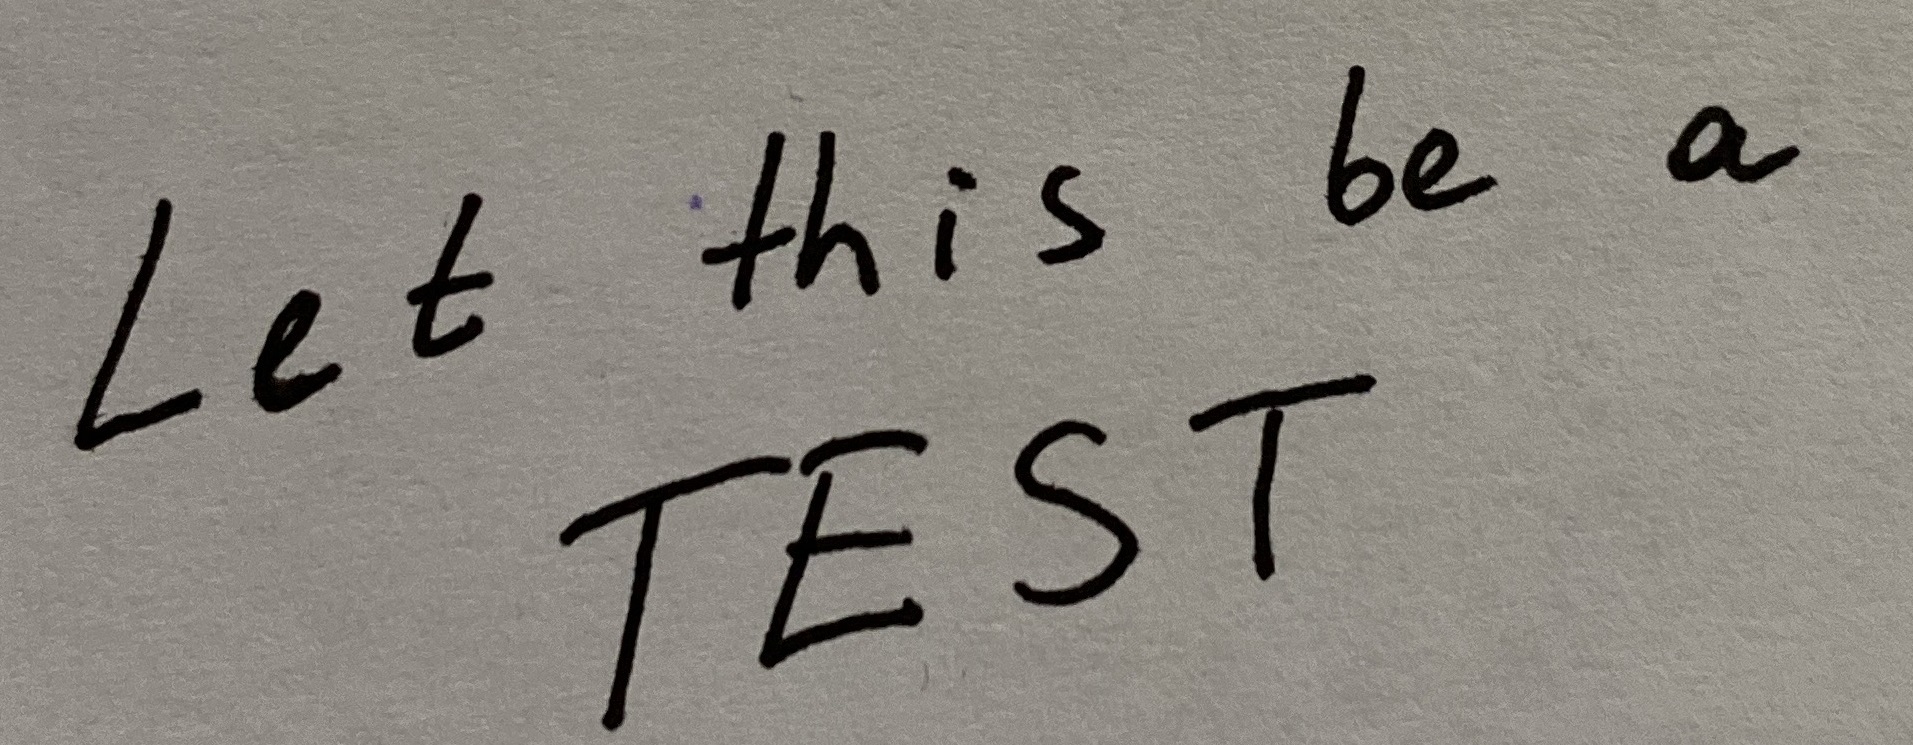 Let this be a
TEST